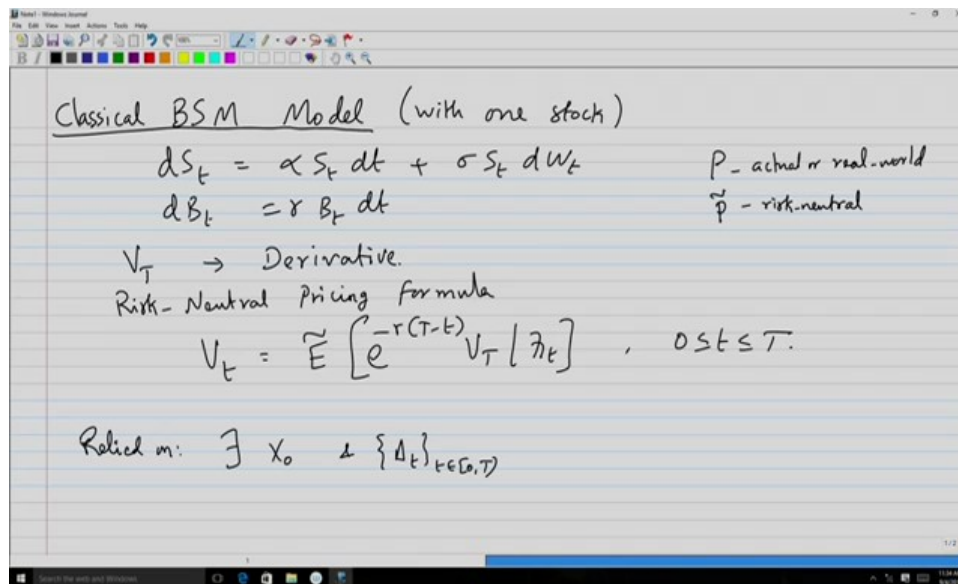 Note1 - Windows Journal
File Edit View Insert Actions Tools Help
B I
Classical BSM Model (with one stock)
dS_t = α S_t dt + σ S_t dW_t
P - actual or real-world
dB_t = r B_t dt
P̃ - risk-neutral
V_T → Derivative.
Risk-Neutral Pricing formula
V_t = Ẽ [e^{-r(T-t)} V_T | ℱ_t] , 0 ≤ t ≤ T.
Relied on: ∃ X_0 & {Δ_t}_{t∈[0,T)}
1
1/2
Search the web and Windows